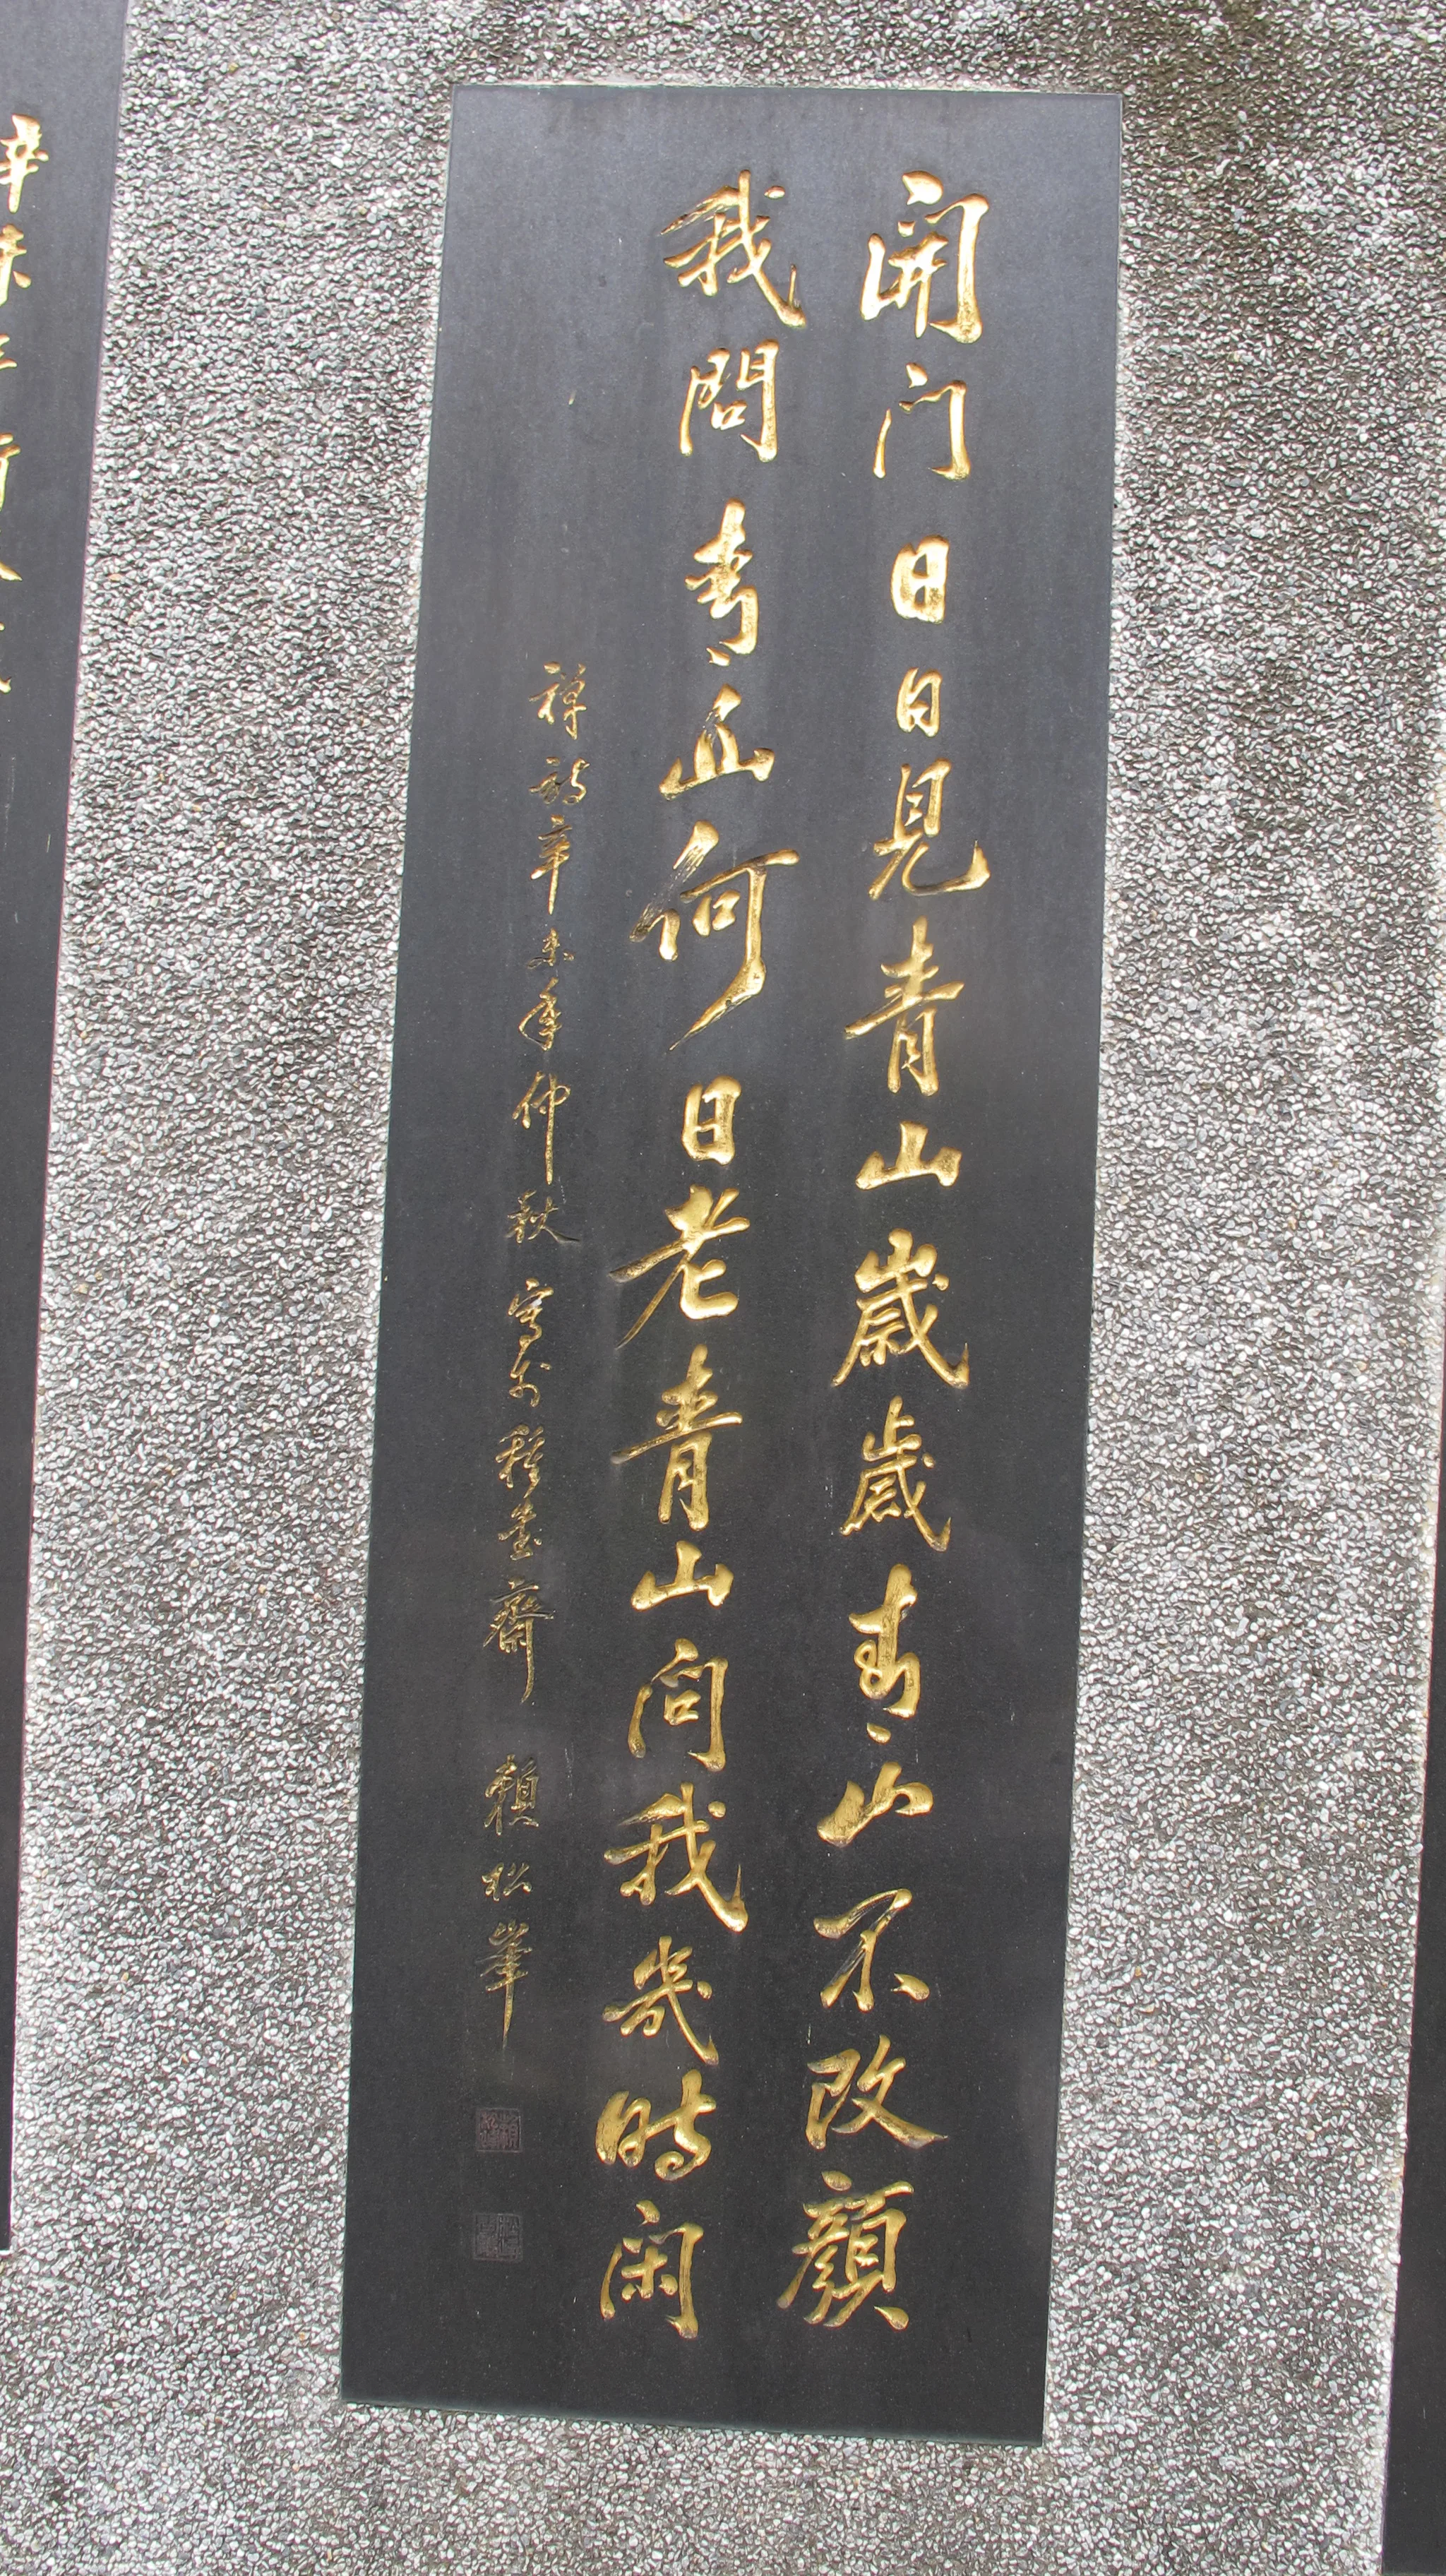 開門日日見青山歲歲青山不改顏
我問青山何日老青山問我幾時閑
禪詩辛未年仲秋 寫於齋 賴松峯
辛未年